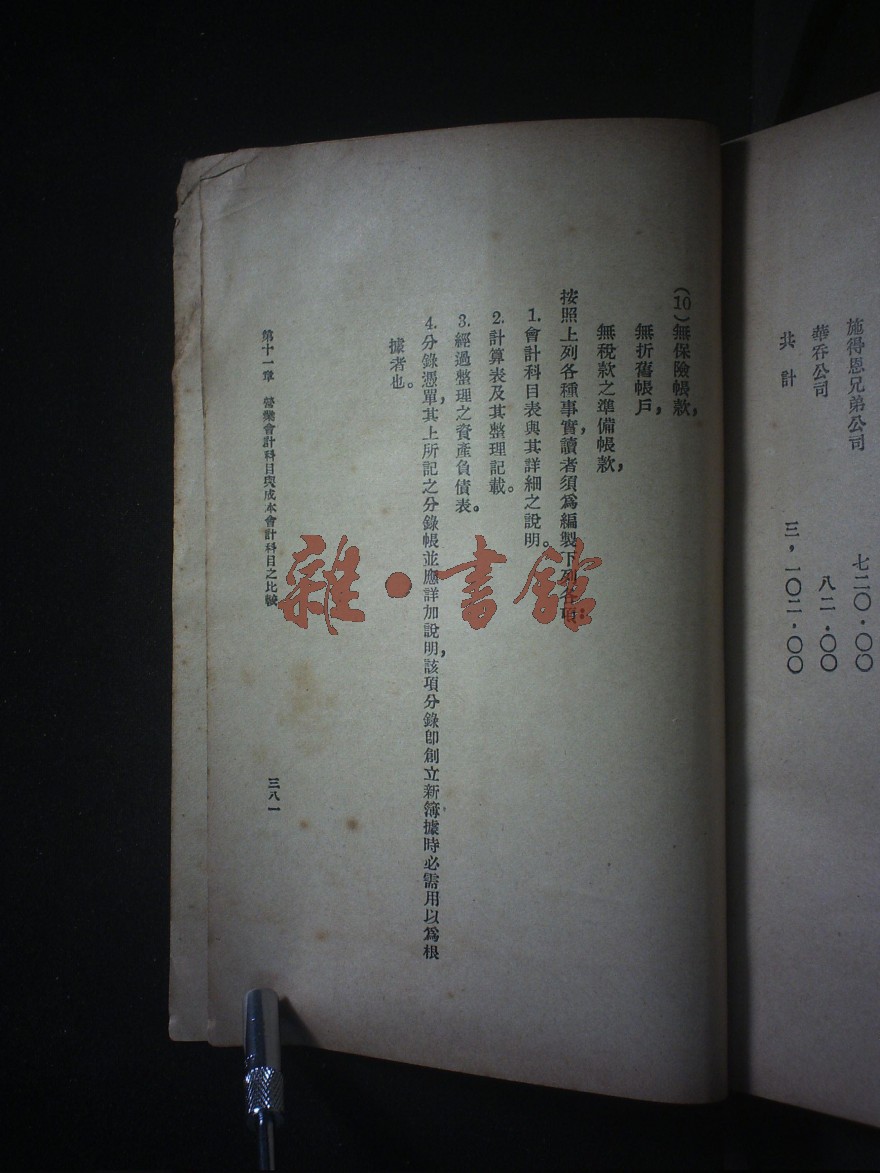 施得恩兄弟公司 七二〇・〇〇
華喬公司 八二・〇〇
共計 三，一〇二・〇〇
(10)無保險帳款，
無折舊帳戶，
無稅款之準備帳款，
按照上列各種事實，讀者須爲編製下列各項：
1.會計科目表與其詳細之說明。
2.計算表及其整理記載。
3.經過整理之資產負債表。
4.分錄憑單，其上所記之分錄帳並應詳加說明，該項分錄卽創立新簿據時必需用以爲根
據者也。
第十一章 營業會計科目與成本會計科目之比較
三八一
雜・書館